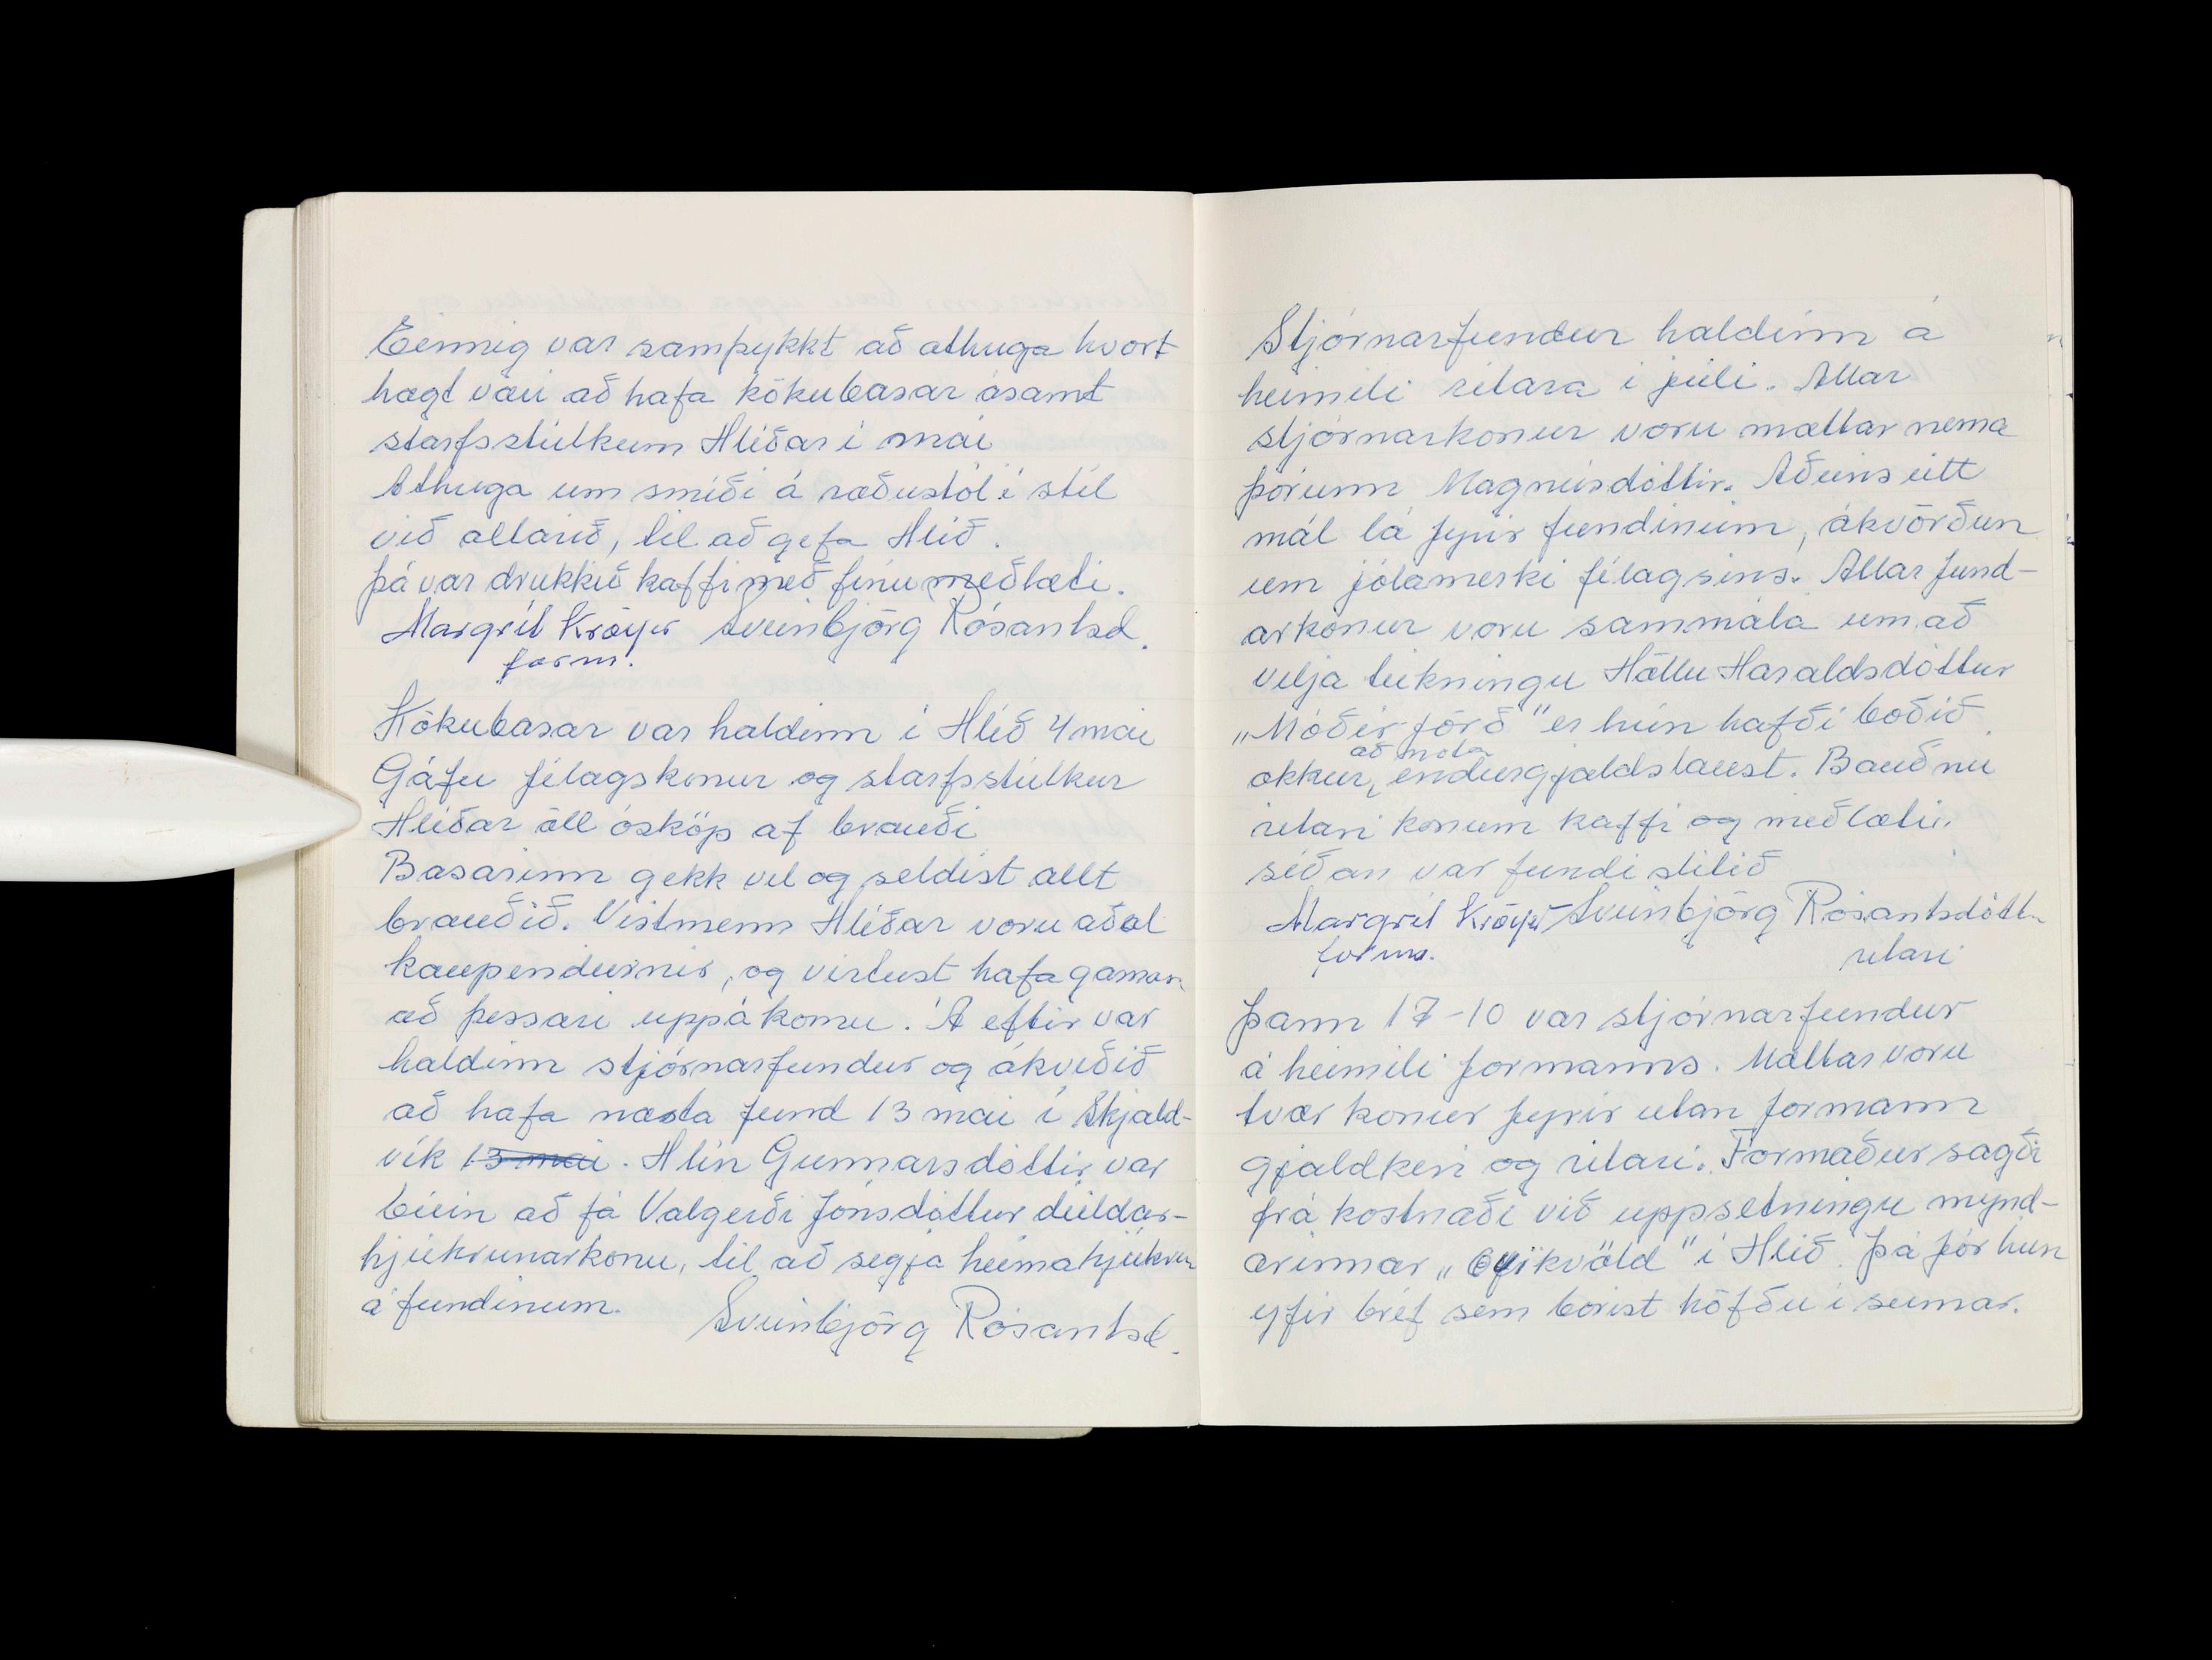 Einnig var samþykkt að athuga hvort
hægt væri að hafa kökubasar ásamt
starfsstúlkum Hlíðar í mai
Athuga um smíði á ræðustól í stíl
við altarið, til að gefa Hlíð.
þá var drukkið kaffi með fínu meðlæti.
Margrét Kröyer Sveinbjörg Rósantsd.
form.
Kökubasar var haldinn í Hlíð 4 mai
Gáfu félagskonur og starfsstúlkur
Hlíðar öll ósköp af brauði
Basarinn gekk vel og seldist allt
brauðið. Vistmenn Hlíðar voru aðal
kaupendurnir, og virtust hafa gaman
að þessari uppákomu. Á eftir var
haldinn stjórnarfundur og ákveðið
að hafa næsta fund 13 mai í Skjald-
vík 13 mai. Hlín Gunnarsdóttir var
búin að fá Valgerði Jónsdóttur deildar-
hjúkrunarkonu, til að segja heimahjúkrun
á fundinum.
Sveinbjörg Rósantsd.
Stjórnarfundur haldinn á
heimili ritara í júlí. Allar
stjórnarkonur voru mættar nema
Þórunn Magnúsdóttir. Aðeins eitt
mál lá fyrir fundinum, ákvörðun
um jólamerki félagsins. Allar fund-
arkonur voru sammála um að
velja teikningu Höllu Haraldsdóttur
„Móðir jörð" er hún hafði boðið
að nota
okkur, endurgjaldslaust. Bauð nú
ritari konum kaffi og meðlæti.
síðan var fundi slitið
Margrét Kröyer Sveinbjörg Rósantsdóttir
form. ritari
Þann 17-10 var stjórnarfundur
á heimili formanns. Mættar voru
tvær konur fyrir utan formann
gjaldkeri og ritari. Formaður sagði
frá kostnaði við uppsetningu mynd-
arinnar „ kvöld" í Hlíð. Þá fór hún
yfir bréf sem borist höfðu í sumar.